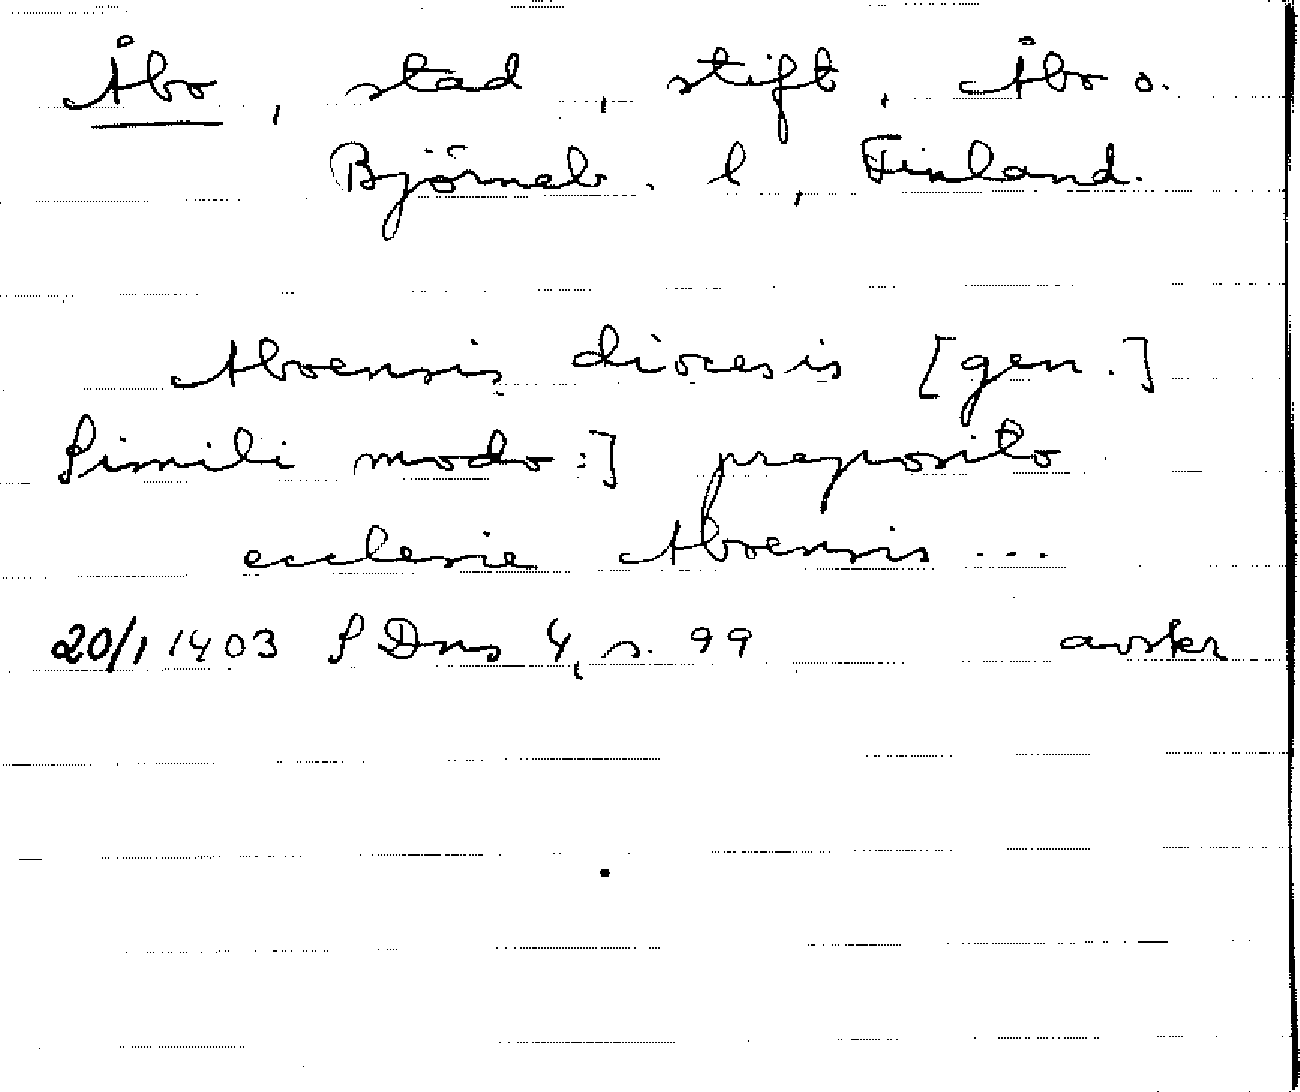 Åbo, stad, stift, Åbo o.
Björneb. l, Finland.
Aboensis diocesis [gen.]
Simili modo:] preposito
ecclesie Aboensis ...
20/1 1403 SDns 4, s. 99 avskr